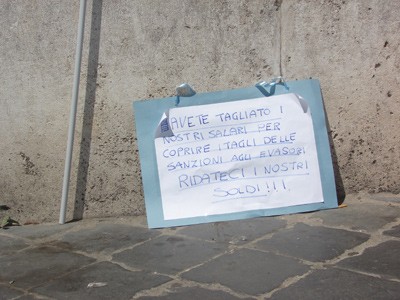 AVETE TAGLIATO I
NOSTRI SALARI PER
COPRIRE I TAGLI DELLE
SANZIONI AGLI EVASORI
RIDATECI I NOSTRI
SOLDI!!!